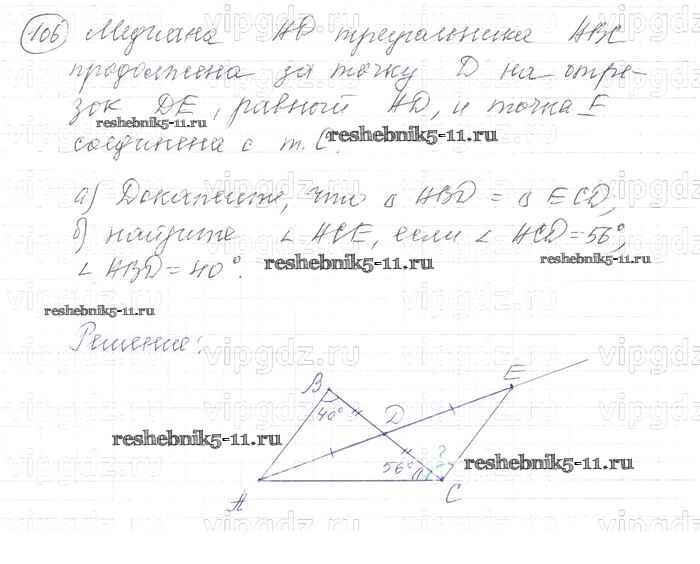 106 Медиана AD треугольника ABC
продолжена за точку D на отре-
зок DE, равный AD, и точка E
reshebnik5-11.ru
reshebnik5-11.ru
соединена с т. C.
а) Докажите, что Δ ABD = Δ ECD;
б) найдите ∠ ACE, если ∠ ACD = 56°,
∠ ABD = 40°.
reshebnik5-11.ru
reshebnik5-11.ru
reshebnik5-11.ru
Решение:
E
B
40°
D
reshebnik5-11.ru
56°
?
reshebnik5-11.ru
A
C
vipgdz.ru